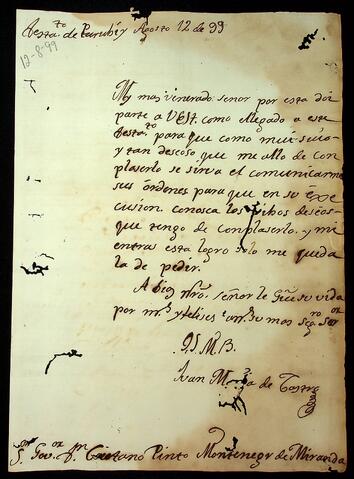 Destacto. de Curubéy Agosto 12 de 99
12-8-99
My mas venerado señor por esta doi
parte a VESª. como ellegado a este
destato. para que como mui suio
y tan deseoso que me allo de con
plaserlo se sirva el comunicarme
sus órdenes para que en su exe
cusion. conosca los vibos deseos
que tengo de conplaserlo. y mi
entras esta logro solo me queda
la de pedir.
A Dios nro. señor le Gue. su vida
por ms. y felises ams. su mas sego. Sor
Q.S.M.B.
Juan de Castro
Sor. Govor. Dn. Caetano Pinto Montenegr de Miranda